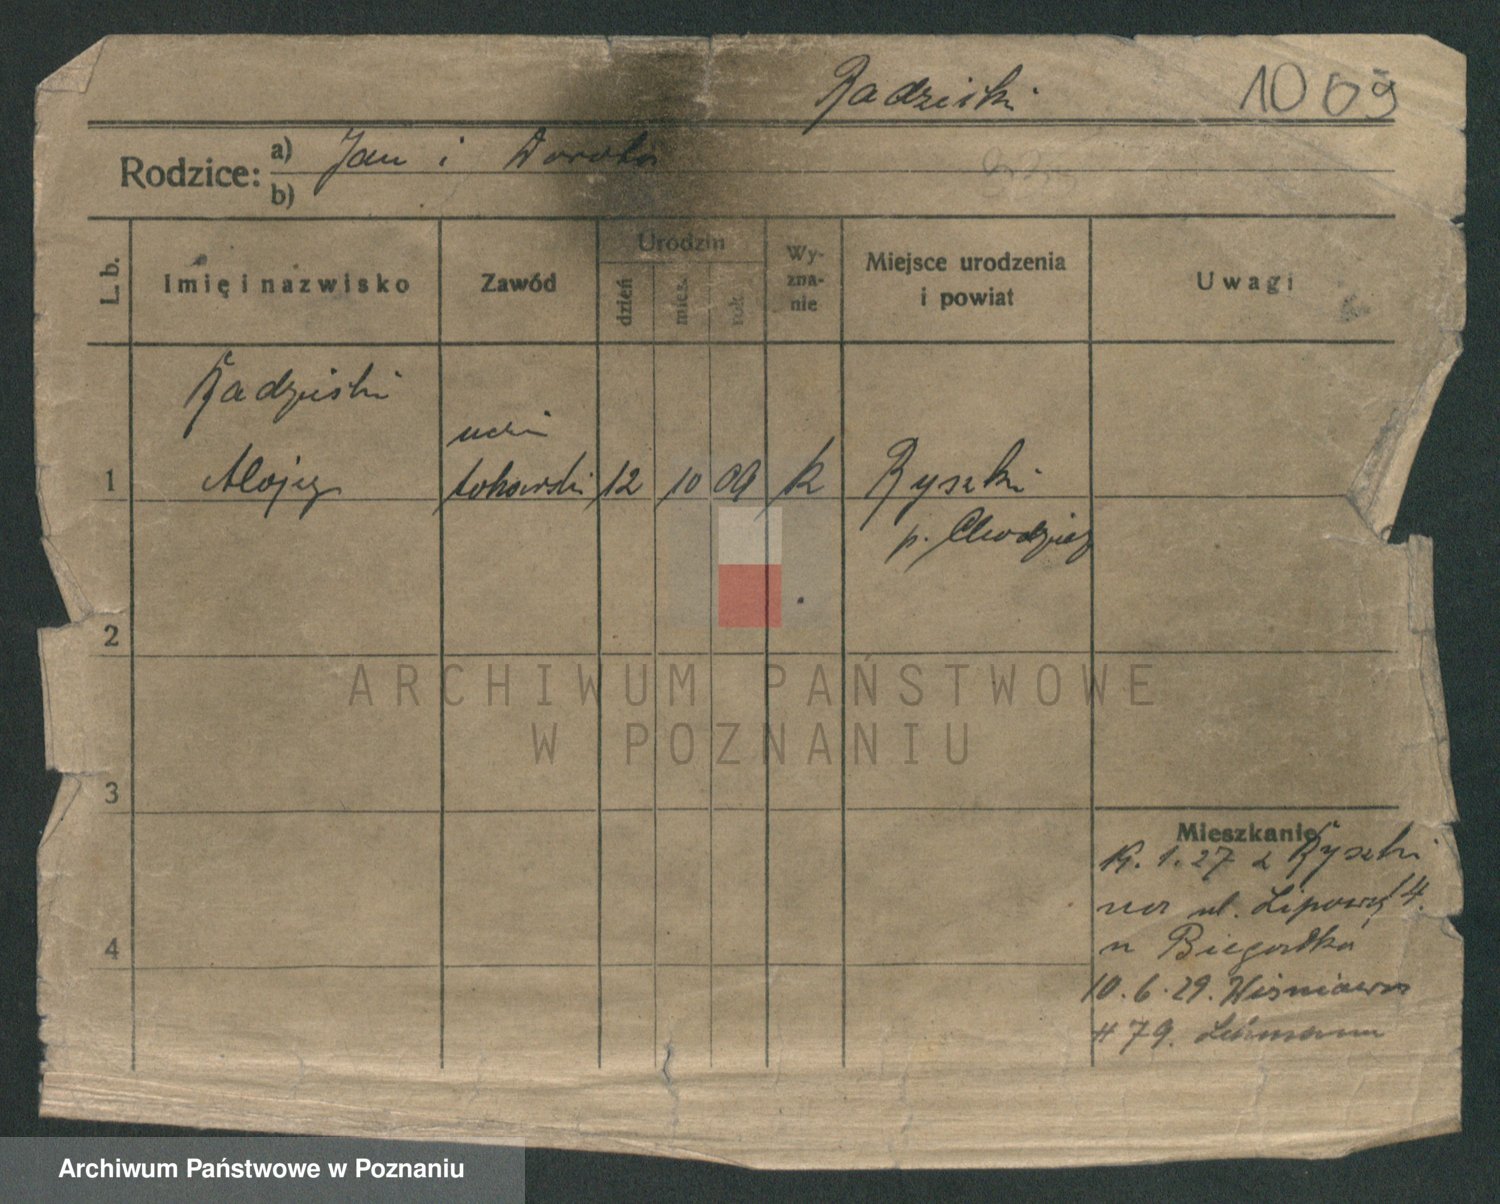 Radziski 1009
Rodzice: a) Jan i Dorota
b)
L. b.
Imię i nazwisko
Zawód
Urodzin
dzień
mies.
rok
Wy-
zna-
nie
Miejsce urodzenia
i powiat
Uwagi
Radziski
uczń
1 Alojzy tokarski 12 10 09 k Ryszki
p. Chodzież
2
3
4
Mieszkanie
1.27 z Ryszki
ul. Lipowa 14.
n
10.6.29. Wiśniowa
# 79. Lehmann
ARCHIWUM PAŃSTWOWE
W POZNANIU
Archiwum Państwowe w Poznaniu